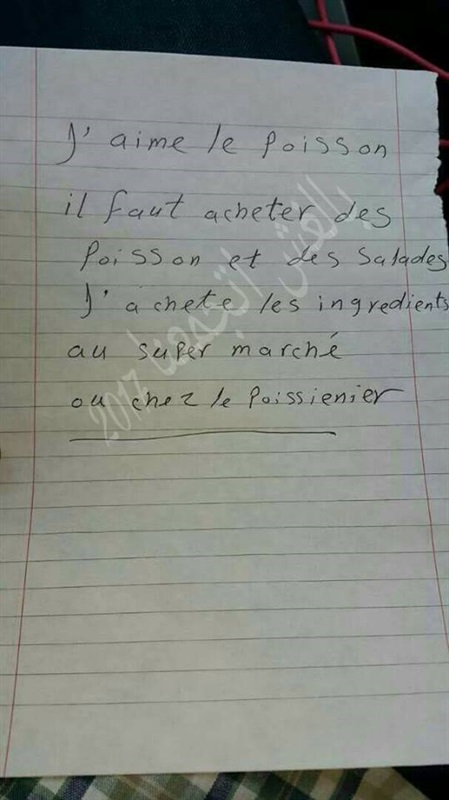 J'aime le Poisson
il faut acheter des
Poisson et des Salades
J'achete les ingredients
au super marché
ou chez le Poissienier
بالعشق اتجمعنا 2017